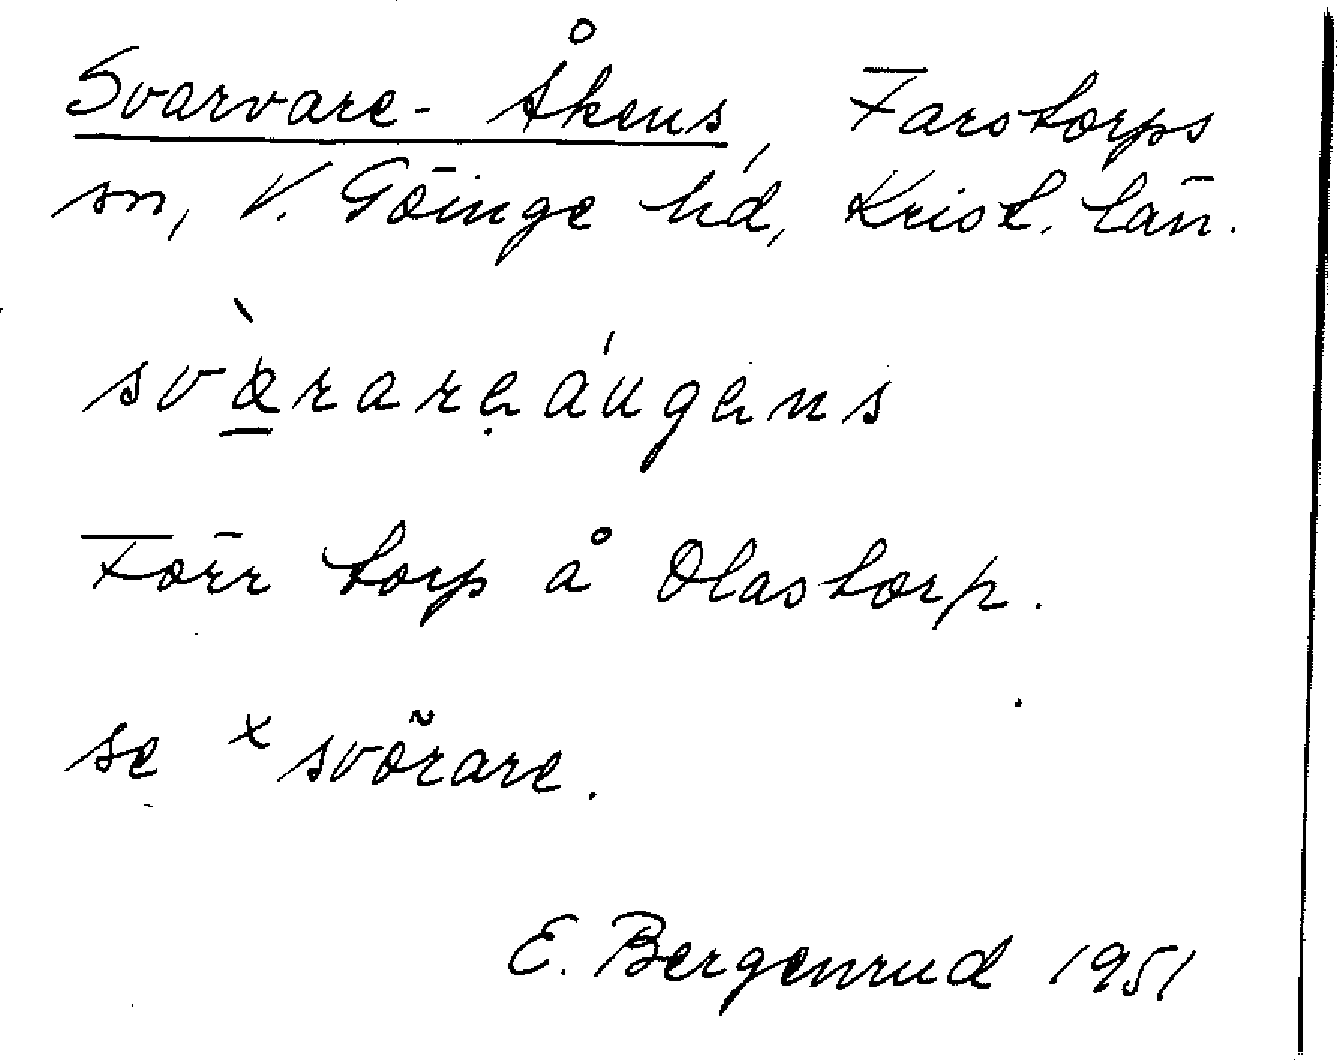 Svarvare-Åkens, Farstorps
sn, V. Göinge hd, Krist. län.
svàrareáugens
Förr torp å Olastorp.
se × svörare.
E. Bergenrud 1951